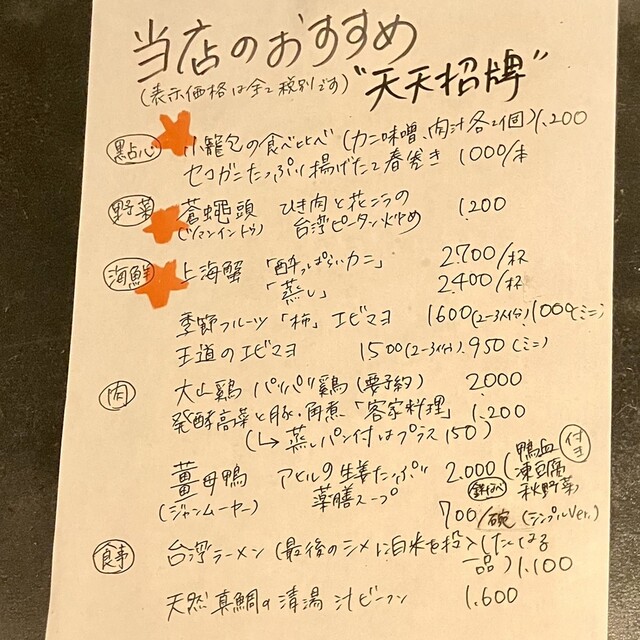 当店のおすすめ
(表示価格は全て税別です) "天天招牌"
點心 小籠包の食べ比べ (カニ味噌、肉汁各2個) 1,200
セコガニたっぷり揚げたて春巻き 1000/本
野菜 蒼蠅頭 ひき肉と花ニラの 1,200
(ツァンイントウ) 台湾ピータン炒め
海鮮 上海蟹 「酔っぱらいカニ」 2,700/杯
「蒸し」 2,400/杯
季節フルーツ「柿」エビマヨ 1600(2-3人分), 1000(ミニ)
王道のエビマヨ 1500(2-3人分), 950(ミニ)
肉 大山鶏 パリパリ鶏(要予約) 2,000
発酵高菜と豚の角煮「客家料理」 1,200
(↳ 蒸しパン付はプラス150)
薑母鴨 アヒルの生姜たっぷり 2,000 (鴨血 凍豆腐 秋野菜) 付き
(ジャンムーヤー) 薬膳スープ
700/碗 (シンプルVer.)
食事 台湾ラーメン (最後のシメに白米を投入したくなる
一品) 1,100
天然真鯛の清湯 汁ビーフン 1,600